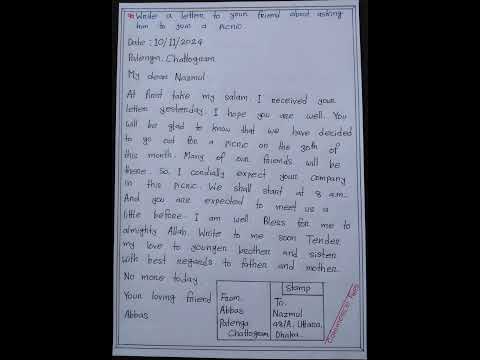 Write a letter to your friend about asking
him to join a picnic.
Date : 10/11/2024
Patenga, Chattogram
My dear Nazmul
At first take my salam. I received your
letter yesterday. I hope you are well. You
will be glad to know that we have decided
to go out for a picnic on the 30th of
this month. Many of our friends will be
there. So, I cordially expect your company
in this picnic. We shall start at 8 a.m.
And you are expected to meet us a
little before. I am well Bless for me to
almighty Allah. Write to me soon Tender
my love to younger brother and sister
with best regards to father and mother.
No more today
Your loving friend
Abbas
Stamp
From,
Abbas
Patenga
Chattogram.
To,
Nazmul
48/A, Uttara,
Dhaka.